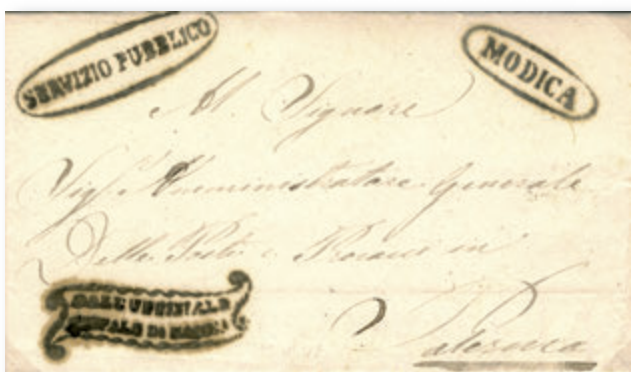 SERVIZIO PUBBLICO
MODICA
Al Signore
Sigr Amministratore Generale
Delle Poste e Procacci in
Palermo